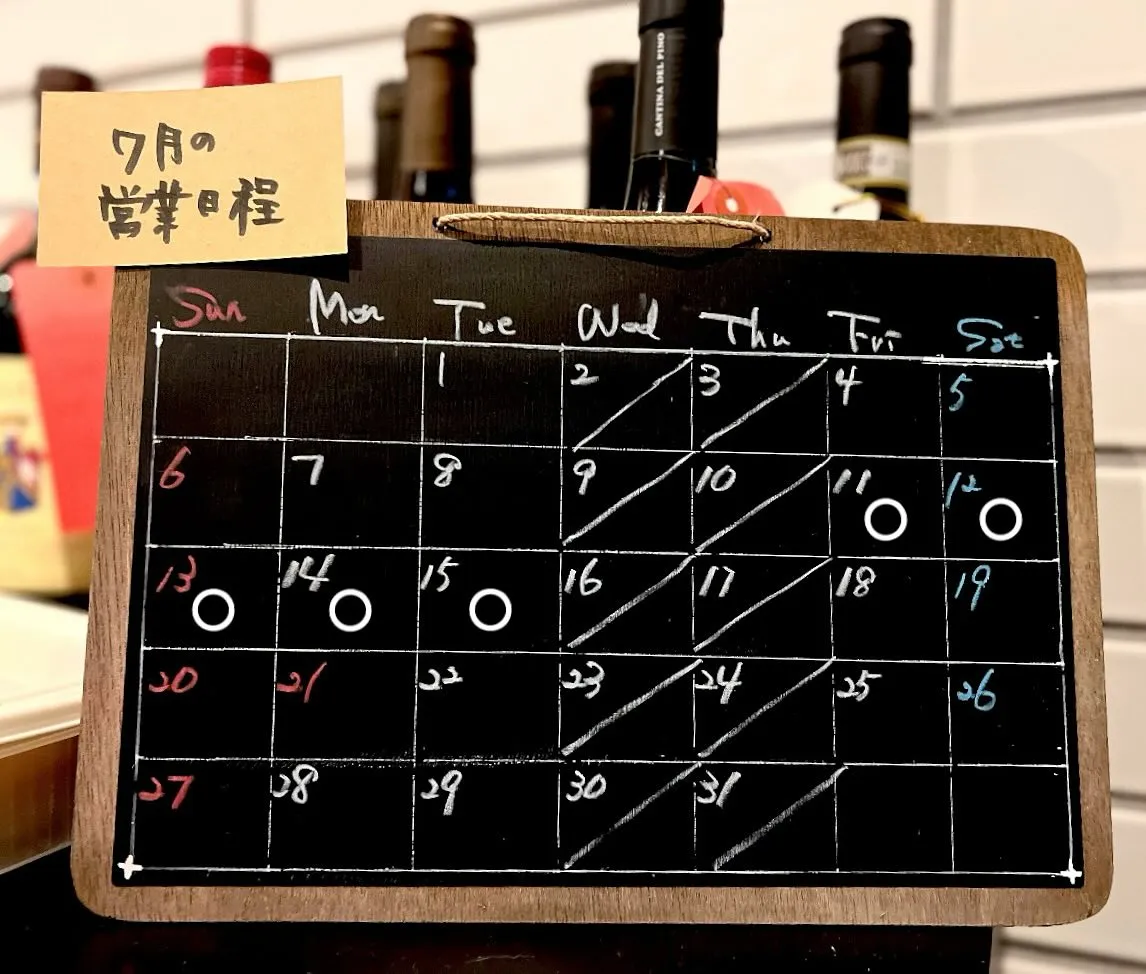 CANTINA DEL PINO
7月の
営業日程
Sun Mon Tue Wed Thu Fri Sat
1 2 3 4 5
6 7 8 9 10 11 12
13 14 15 16 17 18 19
20 21 22 23 24 25 26
27 28 29 30 31